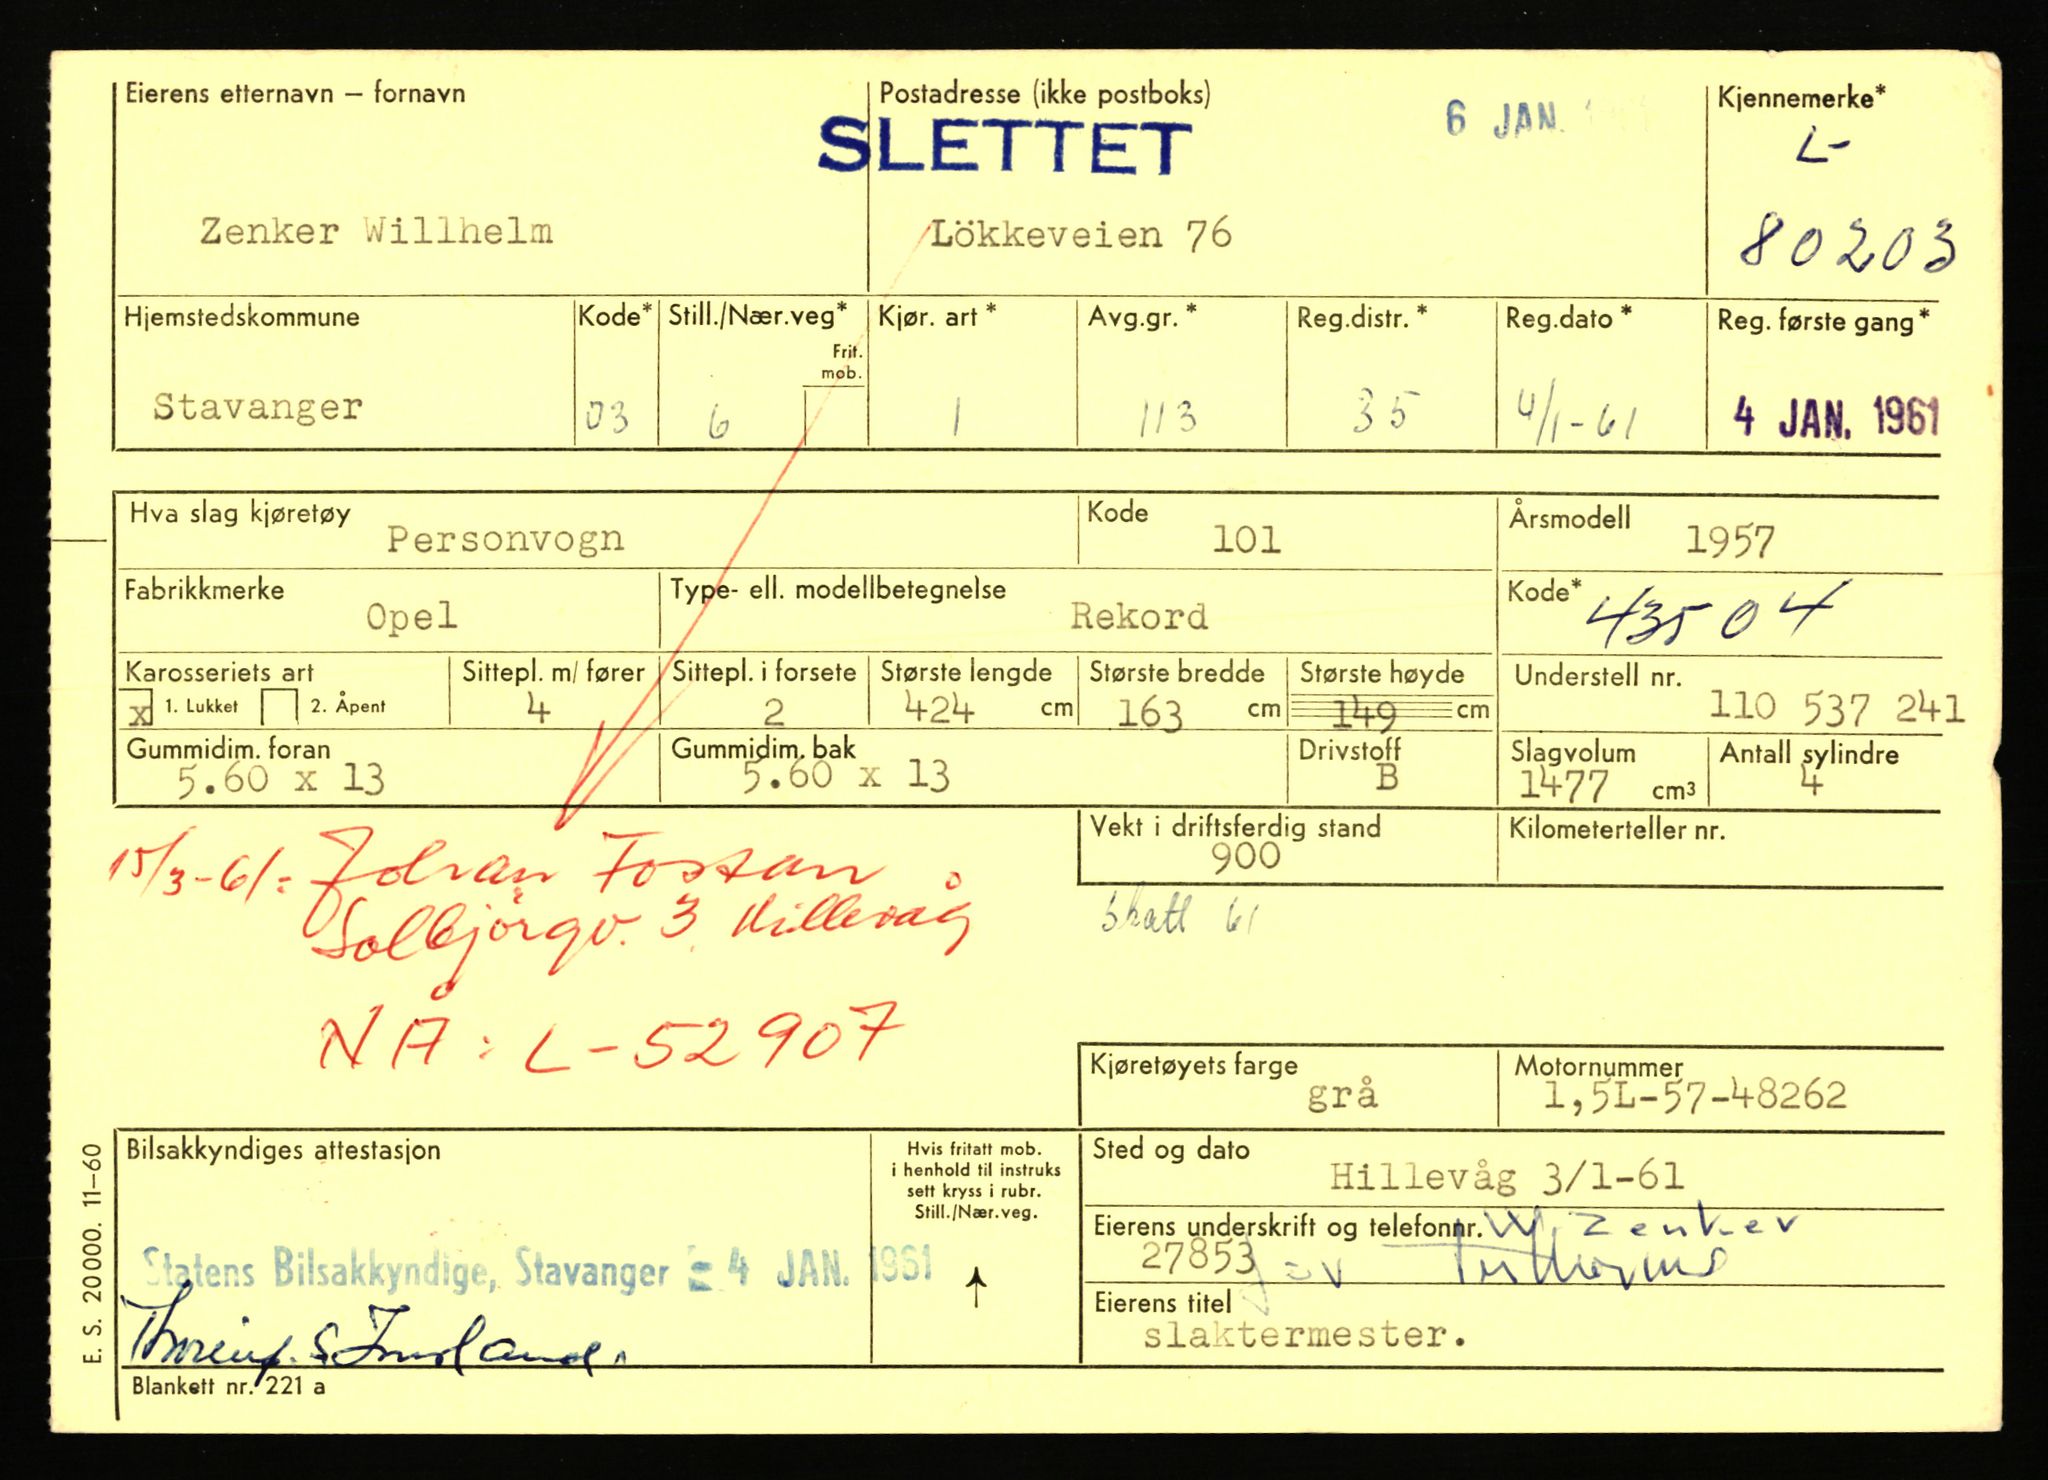 Eierens etternavn – fornavn
Postadresse (ikke postboks)
6 JAN.
Kjennemerke*
SLETTET
L-
Zenker Willhelm
Lökkeveien 76
80203
Hjemstedskommune
Kode*
Still./Nær.veg*
Kjør. art *
Avg.gr. *
Reg.distr. *
Reg.dato *
Reg. første gang*
Frit.
mob.
Stavanger
03
6
1
113
35
4/1-61
4 JAN. 1961
Hva slag kjøretøy
Personvogn
Kode
101
Årsmodell
1957
Fabrikkmerke
Opel
Type- ell. modellbetegnelse
Rekord
Kode*
43504
Karosseriets art
Sittepl. m/ fører
Sittepl. i forsete
Største lengde
Største bredde
Største høyde
Understell nr.
x 1. Lukket 2. Åpent
4
2
424 cm
163 cm
149 cm
110 537 241
Gummidim. foran
5.60 x 13
Gummidim. bak
5.60 x 13
Drivstoff
B
Slagvolum
1477 cm³
Antall sylindre
4
Vekt i driftsferdig stand
900
Kilometerteller nr.
15/3-61:
Fostan
Solbjörgv. 3 Hillevåg
skatt 61
NÅ: L-52907
Kjøretøyets farge
grå
Motornummer
1,5L-57-48262
Bilsakkyndiges attestasjon
Hvis fritatt mob.
i henhold til instruks
sett kryss i rubr.
Still./Nær.veg.
Sted og dato
Hillevåg 3/1-61
Eierens underskrift og telefonnr.
W. Zenker
27853
Statens Bilsakkyndige, Stavanger = 4 JAN. 1961
Eierens titel
slaktermester.
Blankett nr. 221 a
E. S. 20000. 11–60